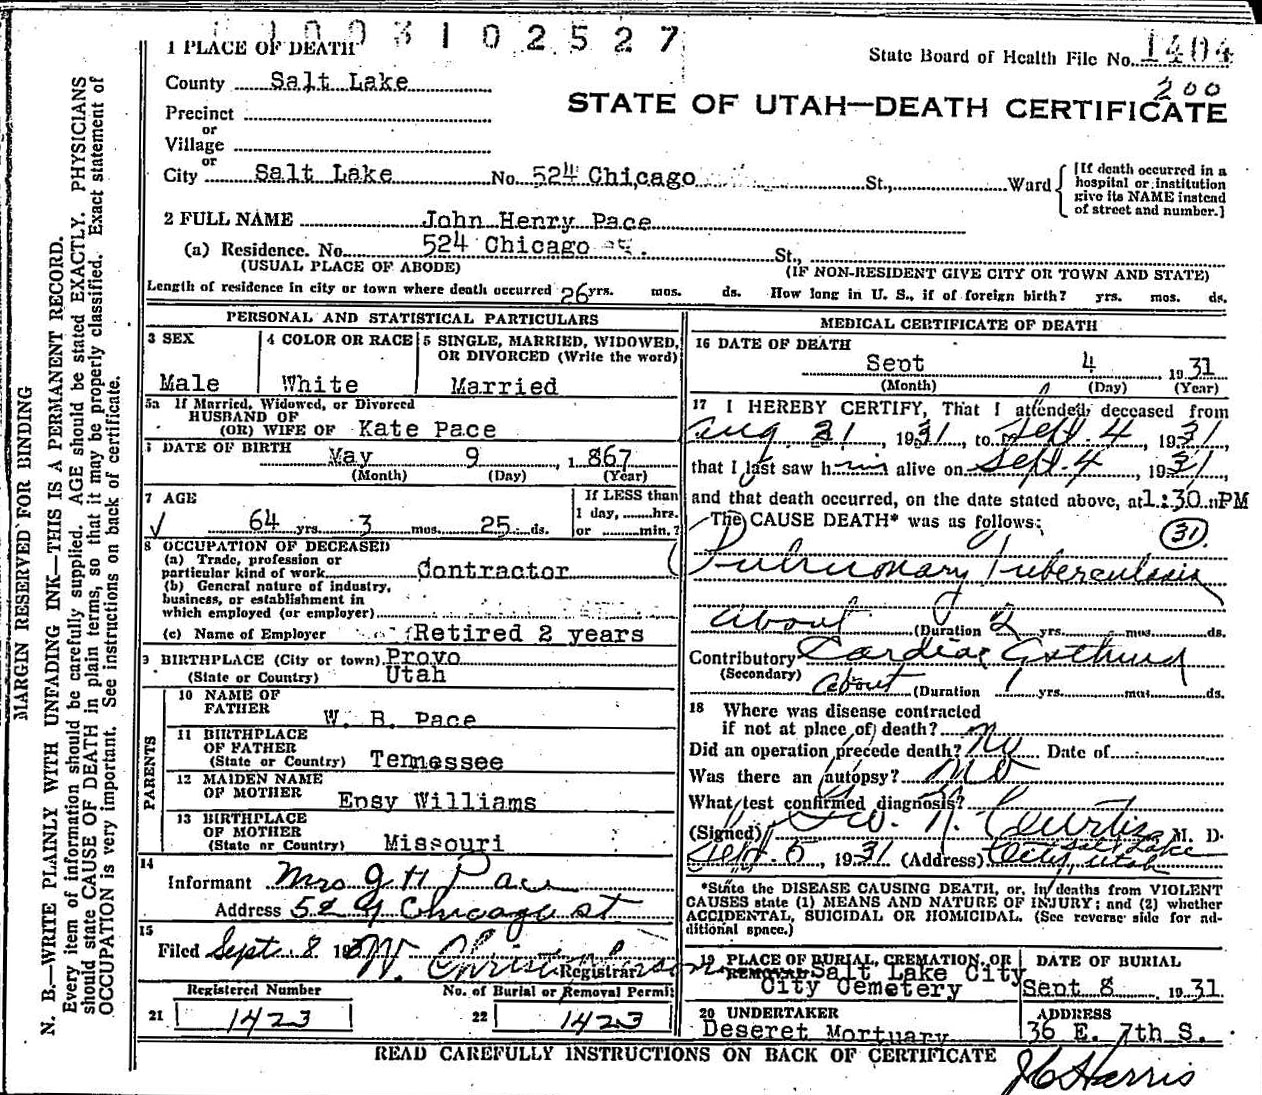 1003102527
1 PLACE OF DEATH
State Board of Health File No. 1404
200
County Salt Lake
STATE OF UTAH—DEATH CERTIFICATE
Precinct
or
Village
or
City Salt Lake No. 524 Chicago St., Ward
[If death occurred in a
hospital or institution
give its NAME instead
of street and number.]
2 FULL NAME John Henry Pace
(a) Residence. No. 524 Chicago St.,
(USUAL PLACE OF ABODE) (IF NON-RESIDENT GIVE CITY OR TOWN AND STATE)
Length of residence in city or town where death occurred 26 yrs. mos. ds. How long in U. S., if of foreign birth? yrs. mos. ds.
PERSONAL AND STATISTICAL PARTICULARS
3 SEX
Male
4 COLOR OR RACE
White
5 SINGLE, MARRIED, WIDOWED,
OR DIVORCED (Write the word)
Married
5a If Married, Widowed, or Divorced
HUSBAND OF
(OR) WIFE OF Kate Pace
DATE OF BIRTH May 9, 1867
(Month) (Day) (Year)
7 AGE
64 yrs. 3 mos. 25 ds.
If LESS than
1 day, hrs.
or min.?
8 OCCUPATION OF DECEASED
(a) Trade, profession or
particular kind of work Contractor
(b) General nature of industry,
business, or establishment in
which employed (or employer)
(c) Name of Employer Retired 2 years
9 BIRTHPLACE (City or town) Provo
(State or Country) Utah
PARENTS
10 NAME OF
FATHER W. B. Pace
11 BIRTHPLACE
OF FATHER
(State or Country) Tennessee
12 MAIDEN NAME
OF MOTHER Epsy Williams
13 BIRTHPLACE
OF MOTHER
(State or Country) Missouri
14
Informant Mrs J H Pace
Address 524 Chicago st
15
Filed Sept. 8 1931 W. Christenson
Registrar
Registered Number No. of Burial or Removal Permit
21 1423 22 1423
MEDICAL CERTIFICATE OF DEATH
16 DATE OF DEATH
Sept 4 1931
(Month) (Day) (Year)
17 I HEREBY CERTIFY, That I attended deceased from
Aug. 31, 1931, to Sept. 4, 1931,
that I last saw him alive on Sept. 4, 1931,
and that death occurred, on the date stated above, at 1:30 PM
The CAUSE DEATH* was as follows:
31
Pulmonary Tuberculosis
About (Duration 2 yrs. mos. ds.
Contributory Cardiac Asthma
(Secondary)
About (Duration 1 yrs. mos. ds.
18 Where was disease contracted
if not at place of death?
Did an operation precede death? No Date of
Was there an autopsy? No
What test confirmed diagnosis?
(Signed) W. R. Curtis M. D.
Sept. 5, 1931 (Address) Salt Lake
City, Utah
*State the DISEASE CAUSING DEATH, or, in deaths from VIOLENT
CAUSES state (1) MEANS AND NATURE OF INJURY; and (2) whether
ACCIDENTAL, SUICIDAL OR HOMICIDAL. (See reverse side for ad-
ditional space.)
19 PLACE OF BURIAL, CREMATION, OR
REMOVAL Salt Lake City
City Cemetery
DATE OF BURIAL
Sept 8 1931
20 UNDERTAKER
Deseret Mortuary
ADDRESS
36 E. 7th S.
READ CAREFULLY INSTRUCTIONS ON BACK OF CERTIFICATE
J C Harris
MARGIN RESERVED FOR BINDING
N. B.—WRITE PLAINLY WITH UNFADING INK—THIS IS A PERMANENT RECORD.
Every item of information should be carefully supplied. AGE should be stated EXACTLY. PHYSICIANS
should state CAUSE OF DEATH in plain terms, so that it may be properly classified. Exact statement of
OCCUPATION is very important. See instructions on back of certificate.